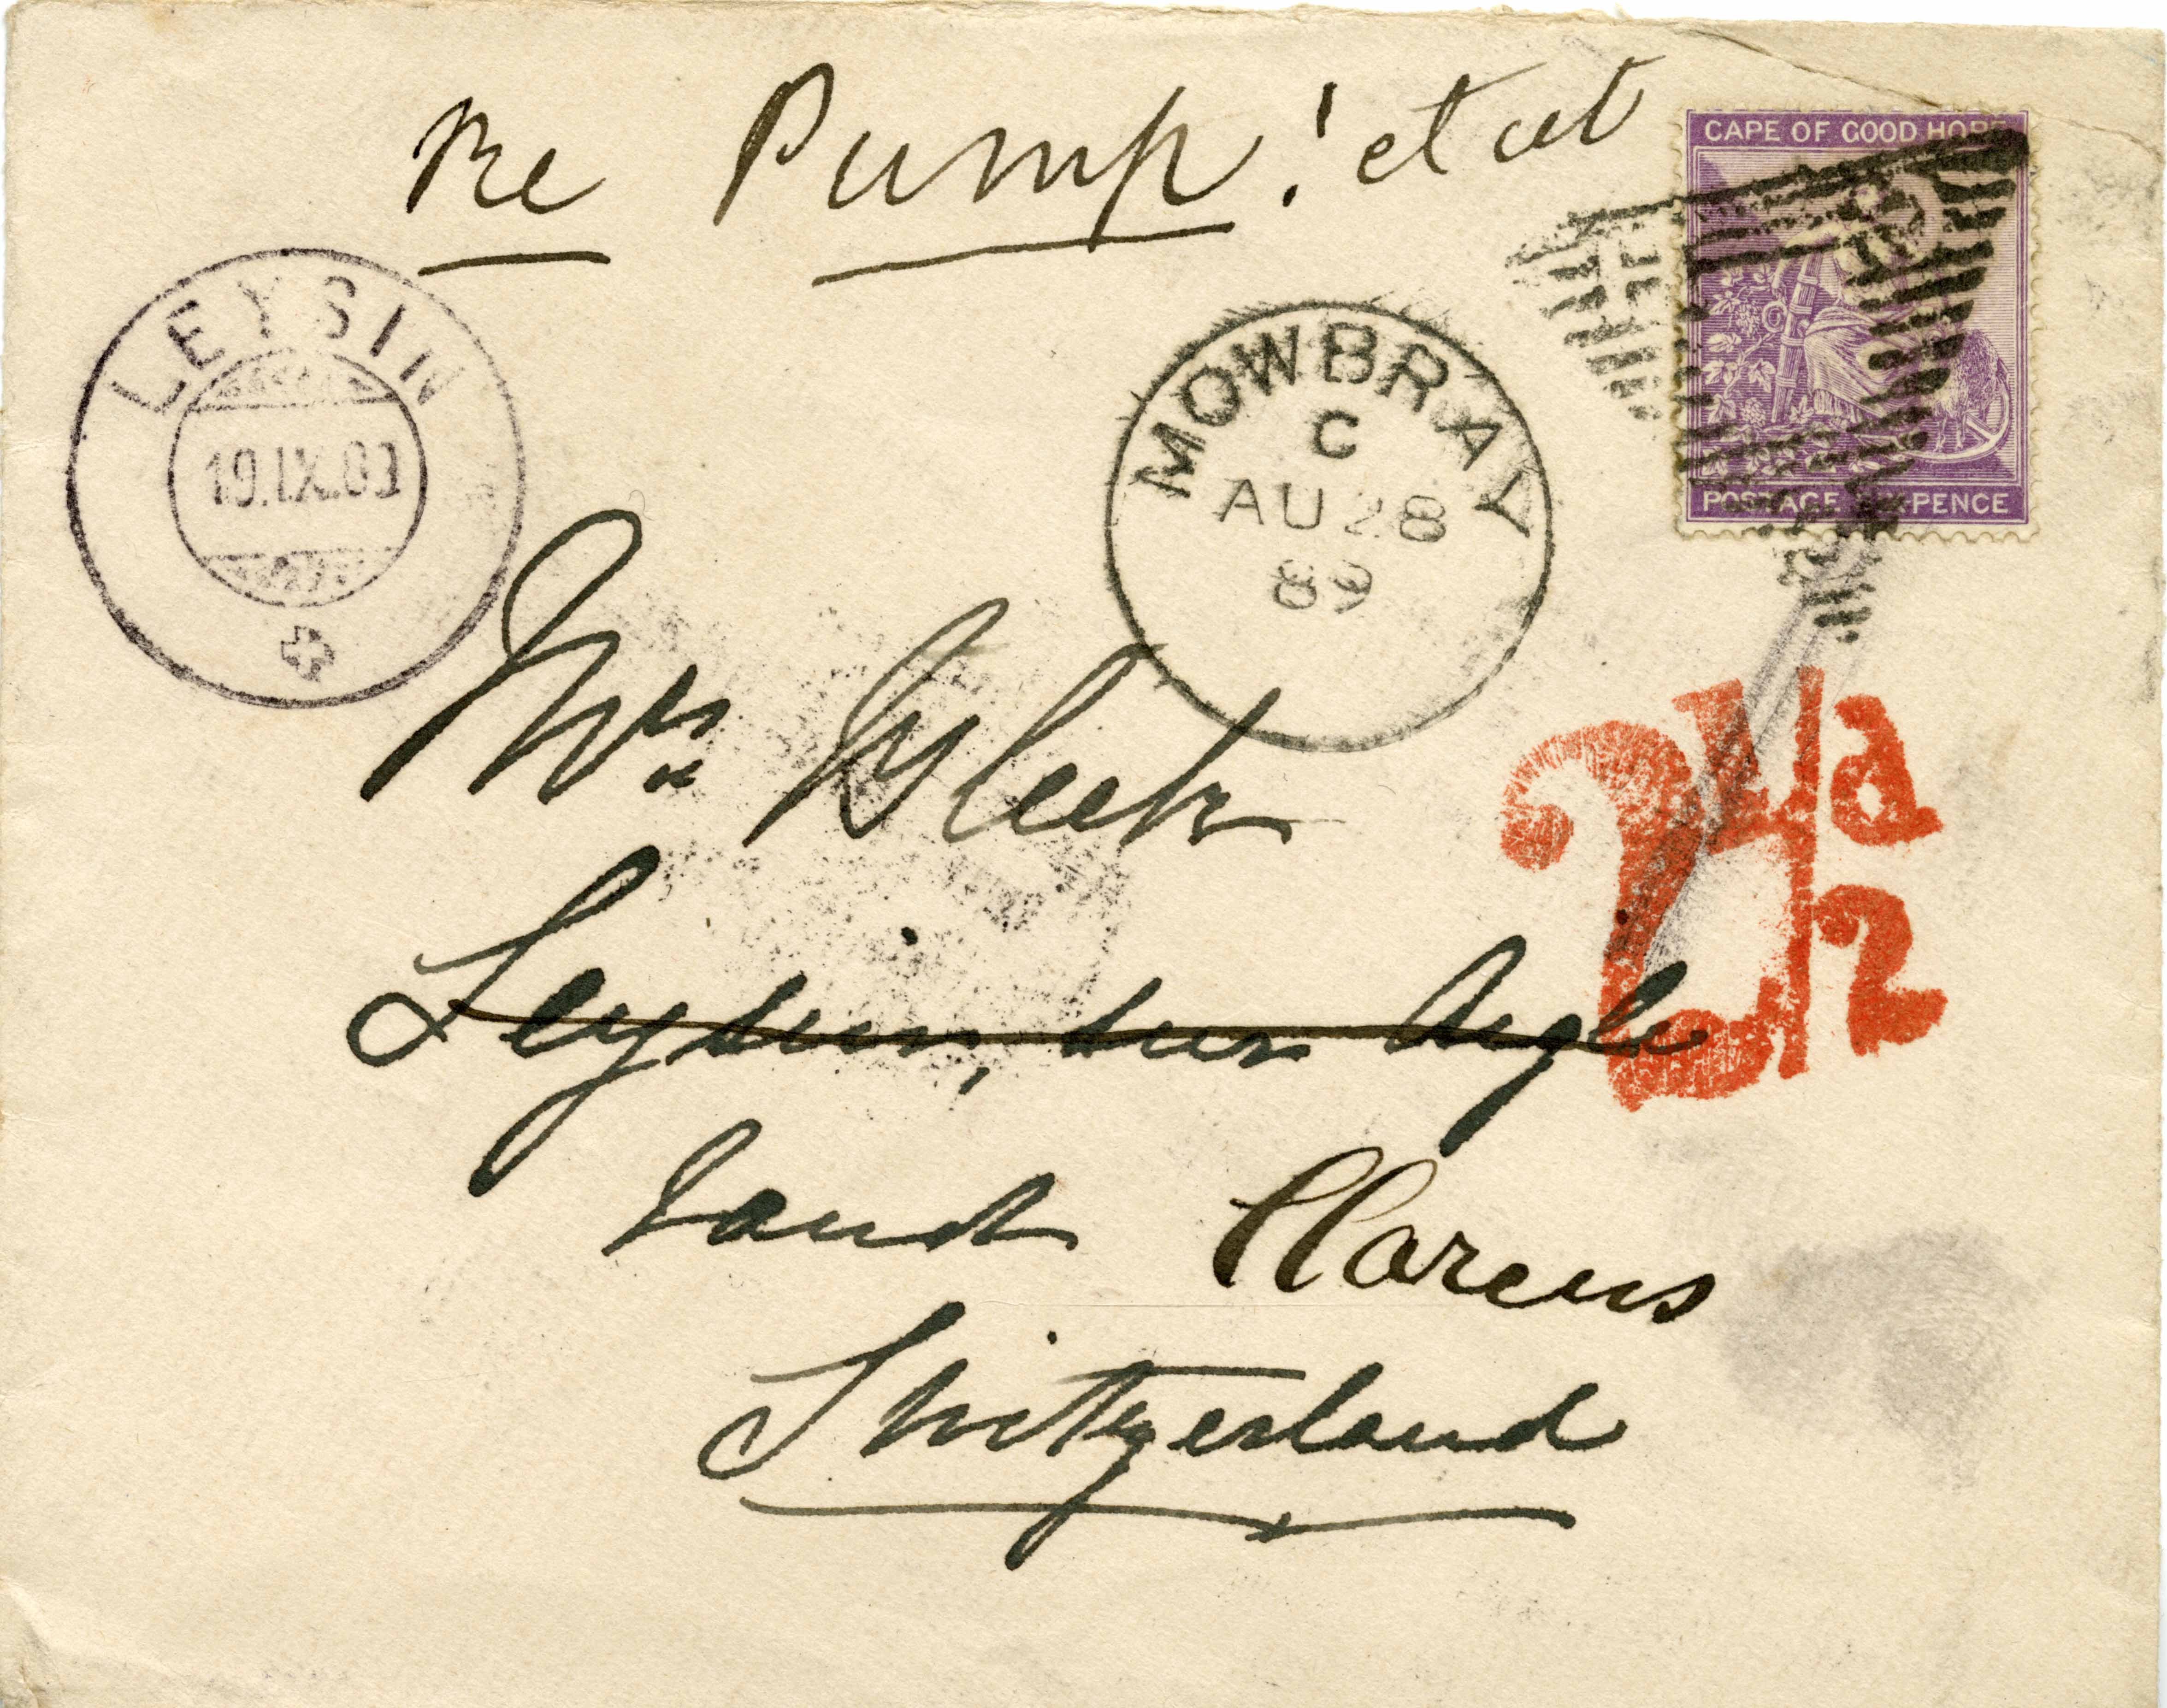 Re Pump! et cet
CAPE OF GOOD HOPE
POSTAGE SIXPENCE
LEYSIN
19.IX.89
MOWBRAY
C
AU 28
89
2 1/2 d
Mrs Bleek
Leysin, sur Aigle
Vaud Clarens
Switzerland